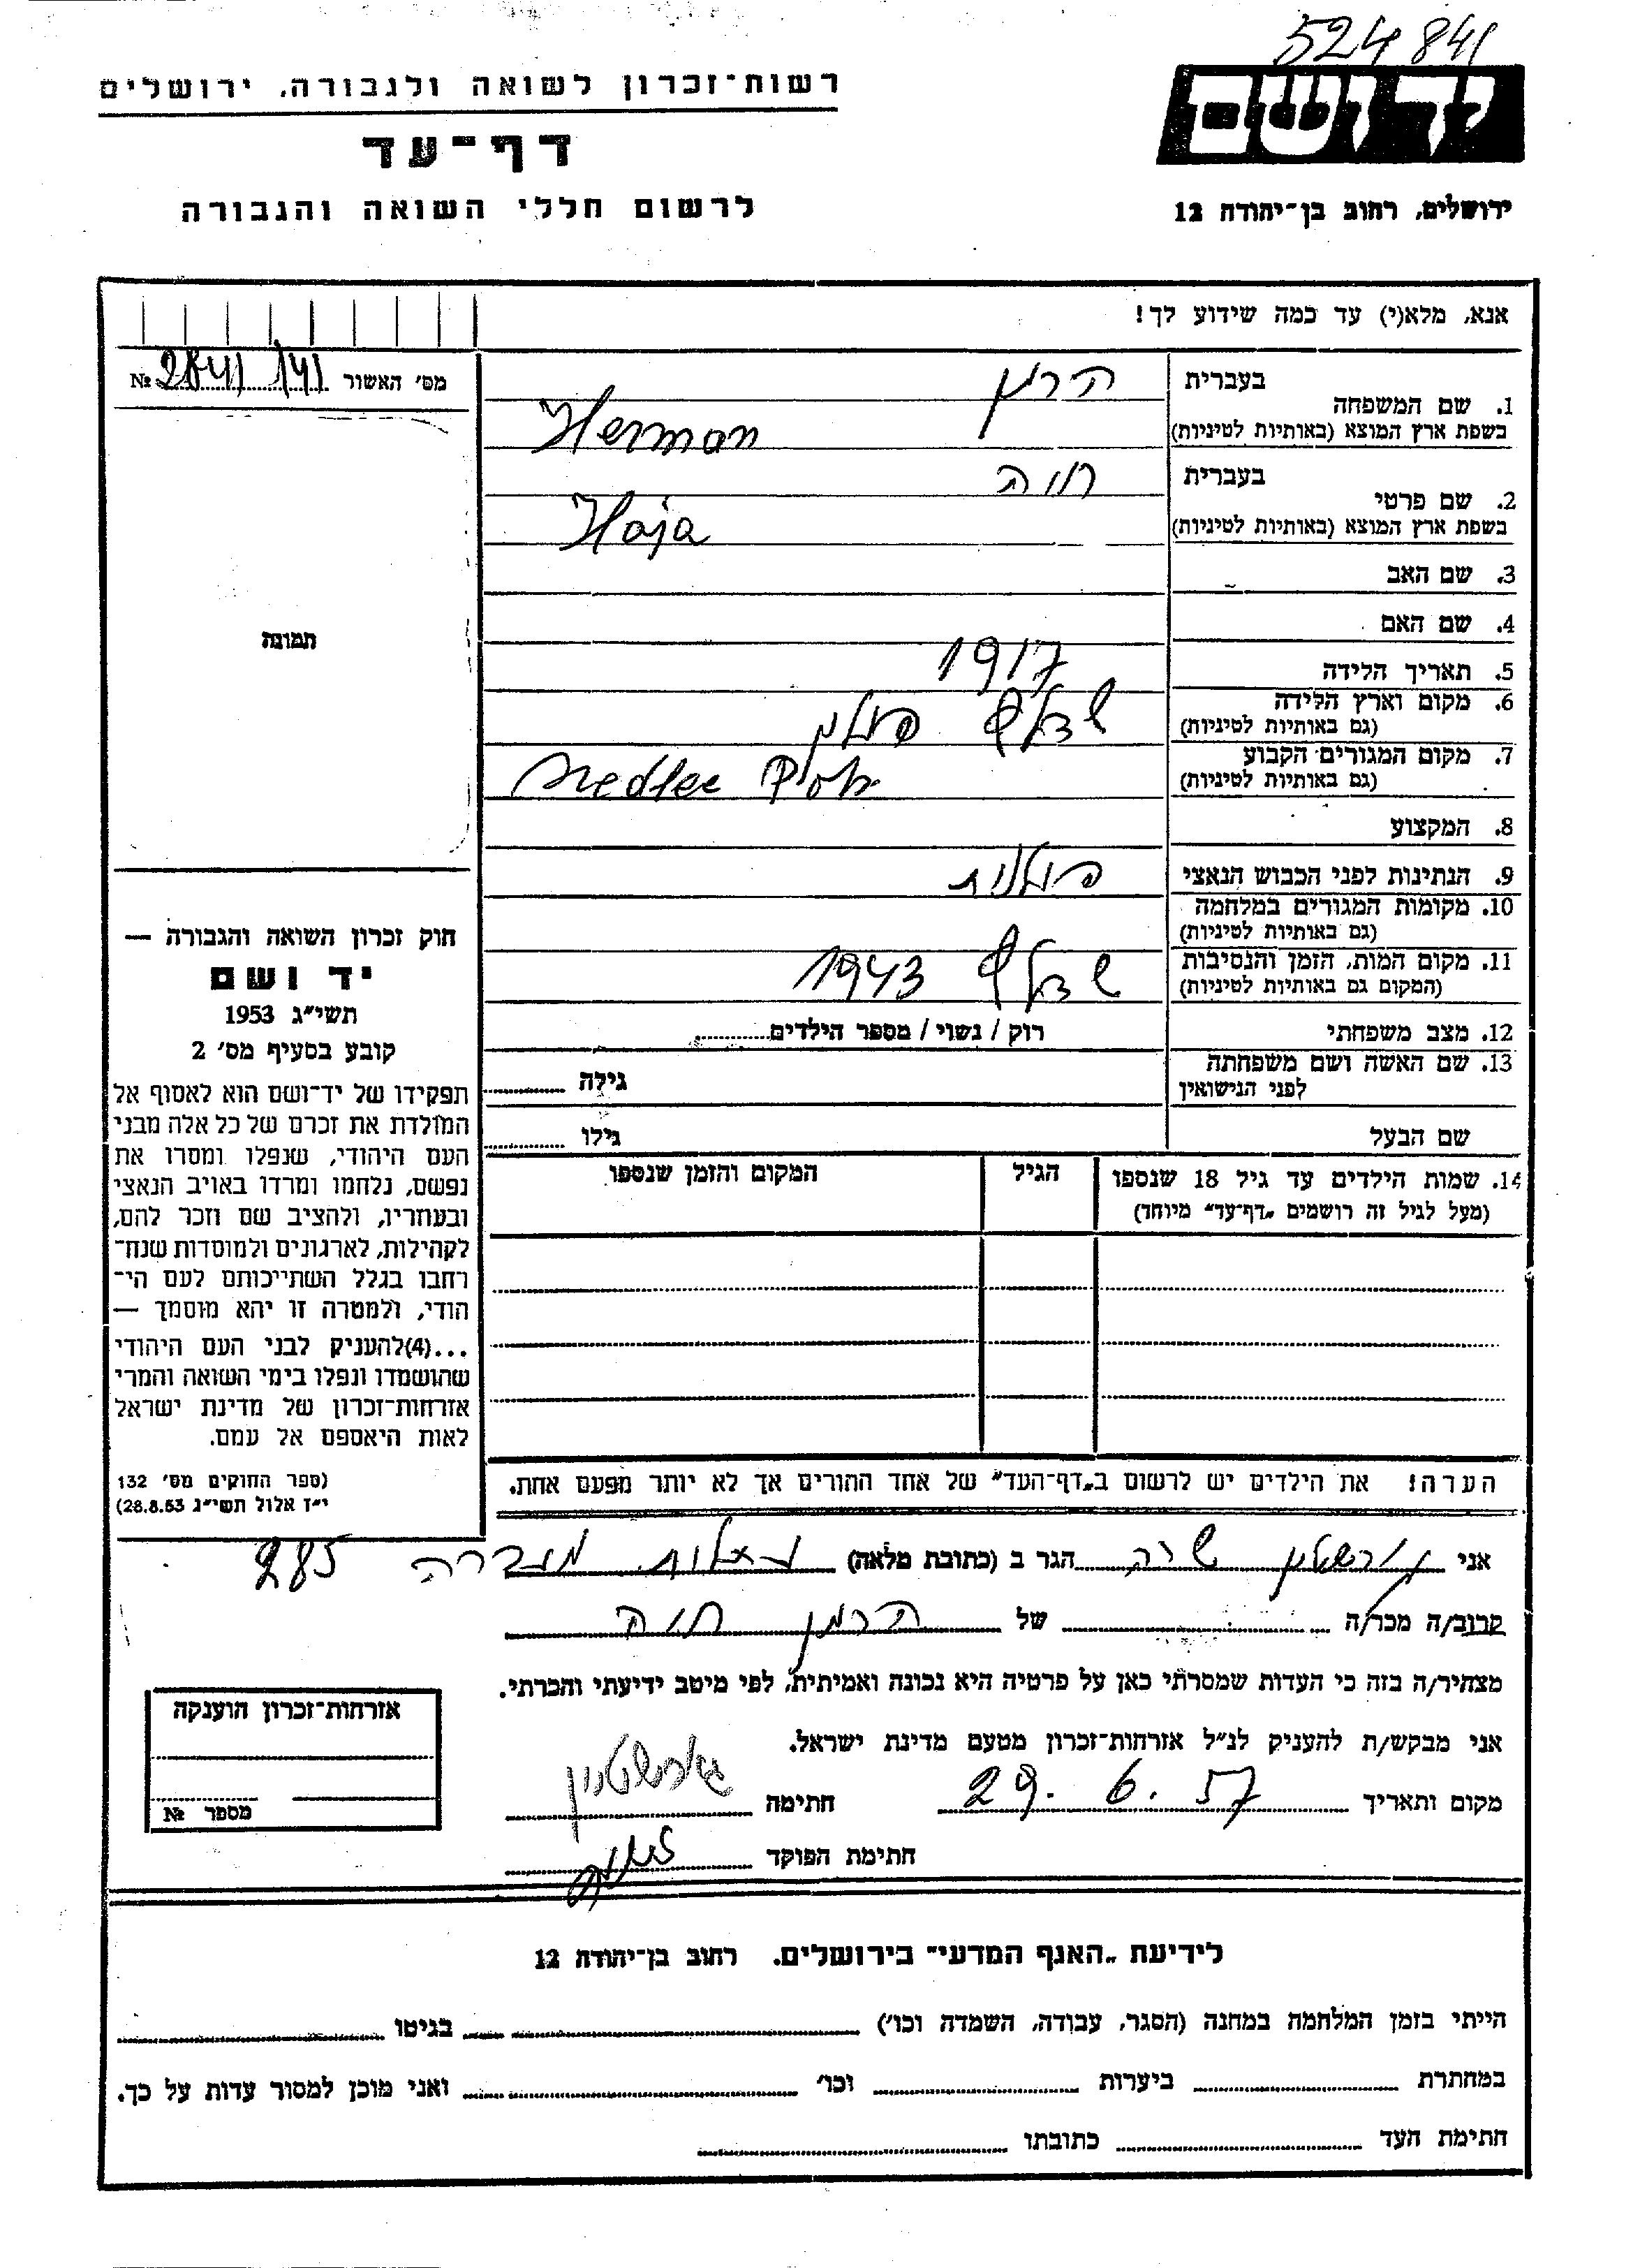 524841
רשות־זכרון לשואה ולגבורה, ירושלים
ידושם
דף־עד
לרשום חללי השואה והגבורה
ירושלים, רחוב בן־יהודה 12
אנא, מלא(י) עד כמה שידוע לך!
מס׳ האשור 141 2841 №
תמונה
בעברית הרמן
1. שם המשפחה
בשפת ארץ המוצא (באותיות לטיניות) Herman
בעברית חוה
2. שם פרטי
בשפת ארץ המוצא (באותיות לטיניות) Haja
3. שם האב
4. שם האם
5. תאריך הלידה 1917
6. מקום וארץ הלידה פולין
(גם באותיות לטיניות)
7. מקום המגורים הקבוע
(גם באותיות לטיניות)
8. המקצוע
9. הנתינות לפני הכבוש הנאצי פולנית
10. מקומות המגורים במלחמה
(גם באותיות לטיניות)
11. מקום המות, הזמן והנסיבות 1943
(המקום גם באותיות לטיניות)
12. מצב משפחתי רוק / נשוי / מספר הילדים
13. שם האשה ושם משפחתה גילה
לפני הנישואין
שם הבעל גילו
14. שמות הילדים עד גיל 18 שנספו הגיל המקום והזמן שנספו
(מעל לגיל זה רושמים „דף־עד״ מיוחד)
הערה! את הילדים יש לרשום ב„דף־העד״ של אחד ההורים אך לא יותר מפעם אחת.
חוק זכרון השואה והגבורה —
יד ושם
תשי״ג 1953
קובע בסעיף מס׳ 2
תפקידו של יד־ושם הוא לאסוף אל
המולדת את זכרם של כל אלה מבני
העם היהודי, שנפלו ומסרו את
נפשם, נלחמו ומרדו באויב הנאצי
ובעוזריו, ולהציב שם וזכר להם,
לקהילות, לארגונים ולמוסדות שנח־
רחבו בגלל השתייכותם לעם הי־
הודי, ולמטרה זו יהא מוסמך —
...(4)להעניק לבני העם היהודי
שהושמדו ונפלו בימי השואה והמרי
אזרחות־זכרון של מדינת ישראל
לאות היאספם אל עמם.
(ספר החוקים מס׳ 132
י״ז אלול תשי״ג 28.8.53)
אני שרה הגר ב (כתובת מלאה) 285
קרוב/ה מכר/ה של הרמן חוה
מצהיר/ה בזה כי העדות שמסרתי כאן על פרטיה היא נכונה ואמיתית, לפי מיטב ידיעתי והכרתי.
אני מבקש/ת להעניק לנ״ל אזרחות־זכרון מטעם מדינת ישראל.
מקום ותאריך 29. 6. 57 חתימה
חתימת הפוקד
אזרחות־זכרון הוענקה
מספר №
לידיעת „האגף המדעי״ בירושלים. רחוב בן־יהודה 12
הייתי בזמן המלחמה במחנה (הסגר, עבודה, השמדה וכו׳) בגיטו
במחתרת ביערות וכו׳ ואני מוכן למסור עדות על כך.
חתימת העד כתובתו